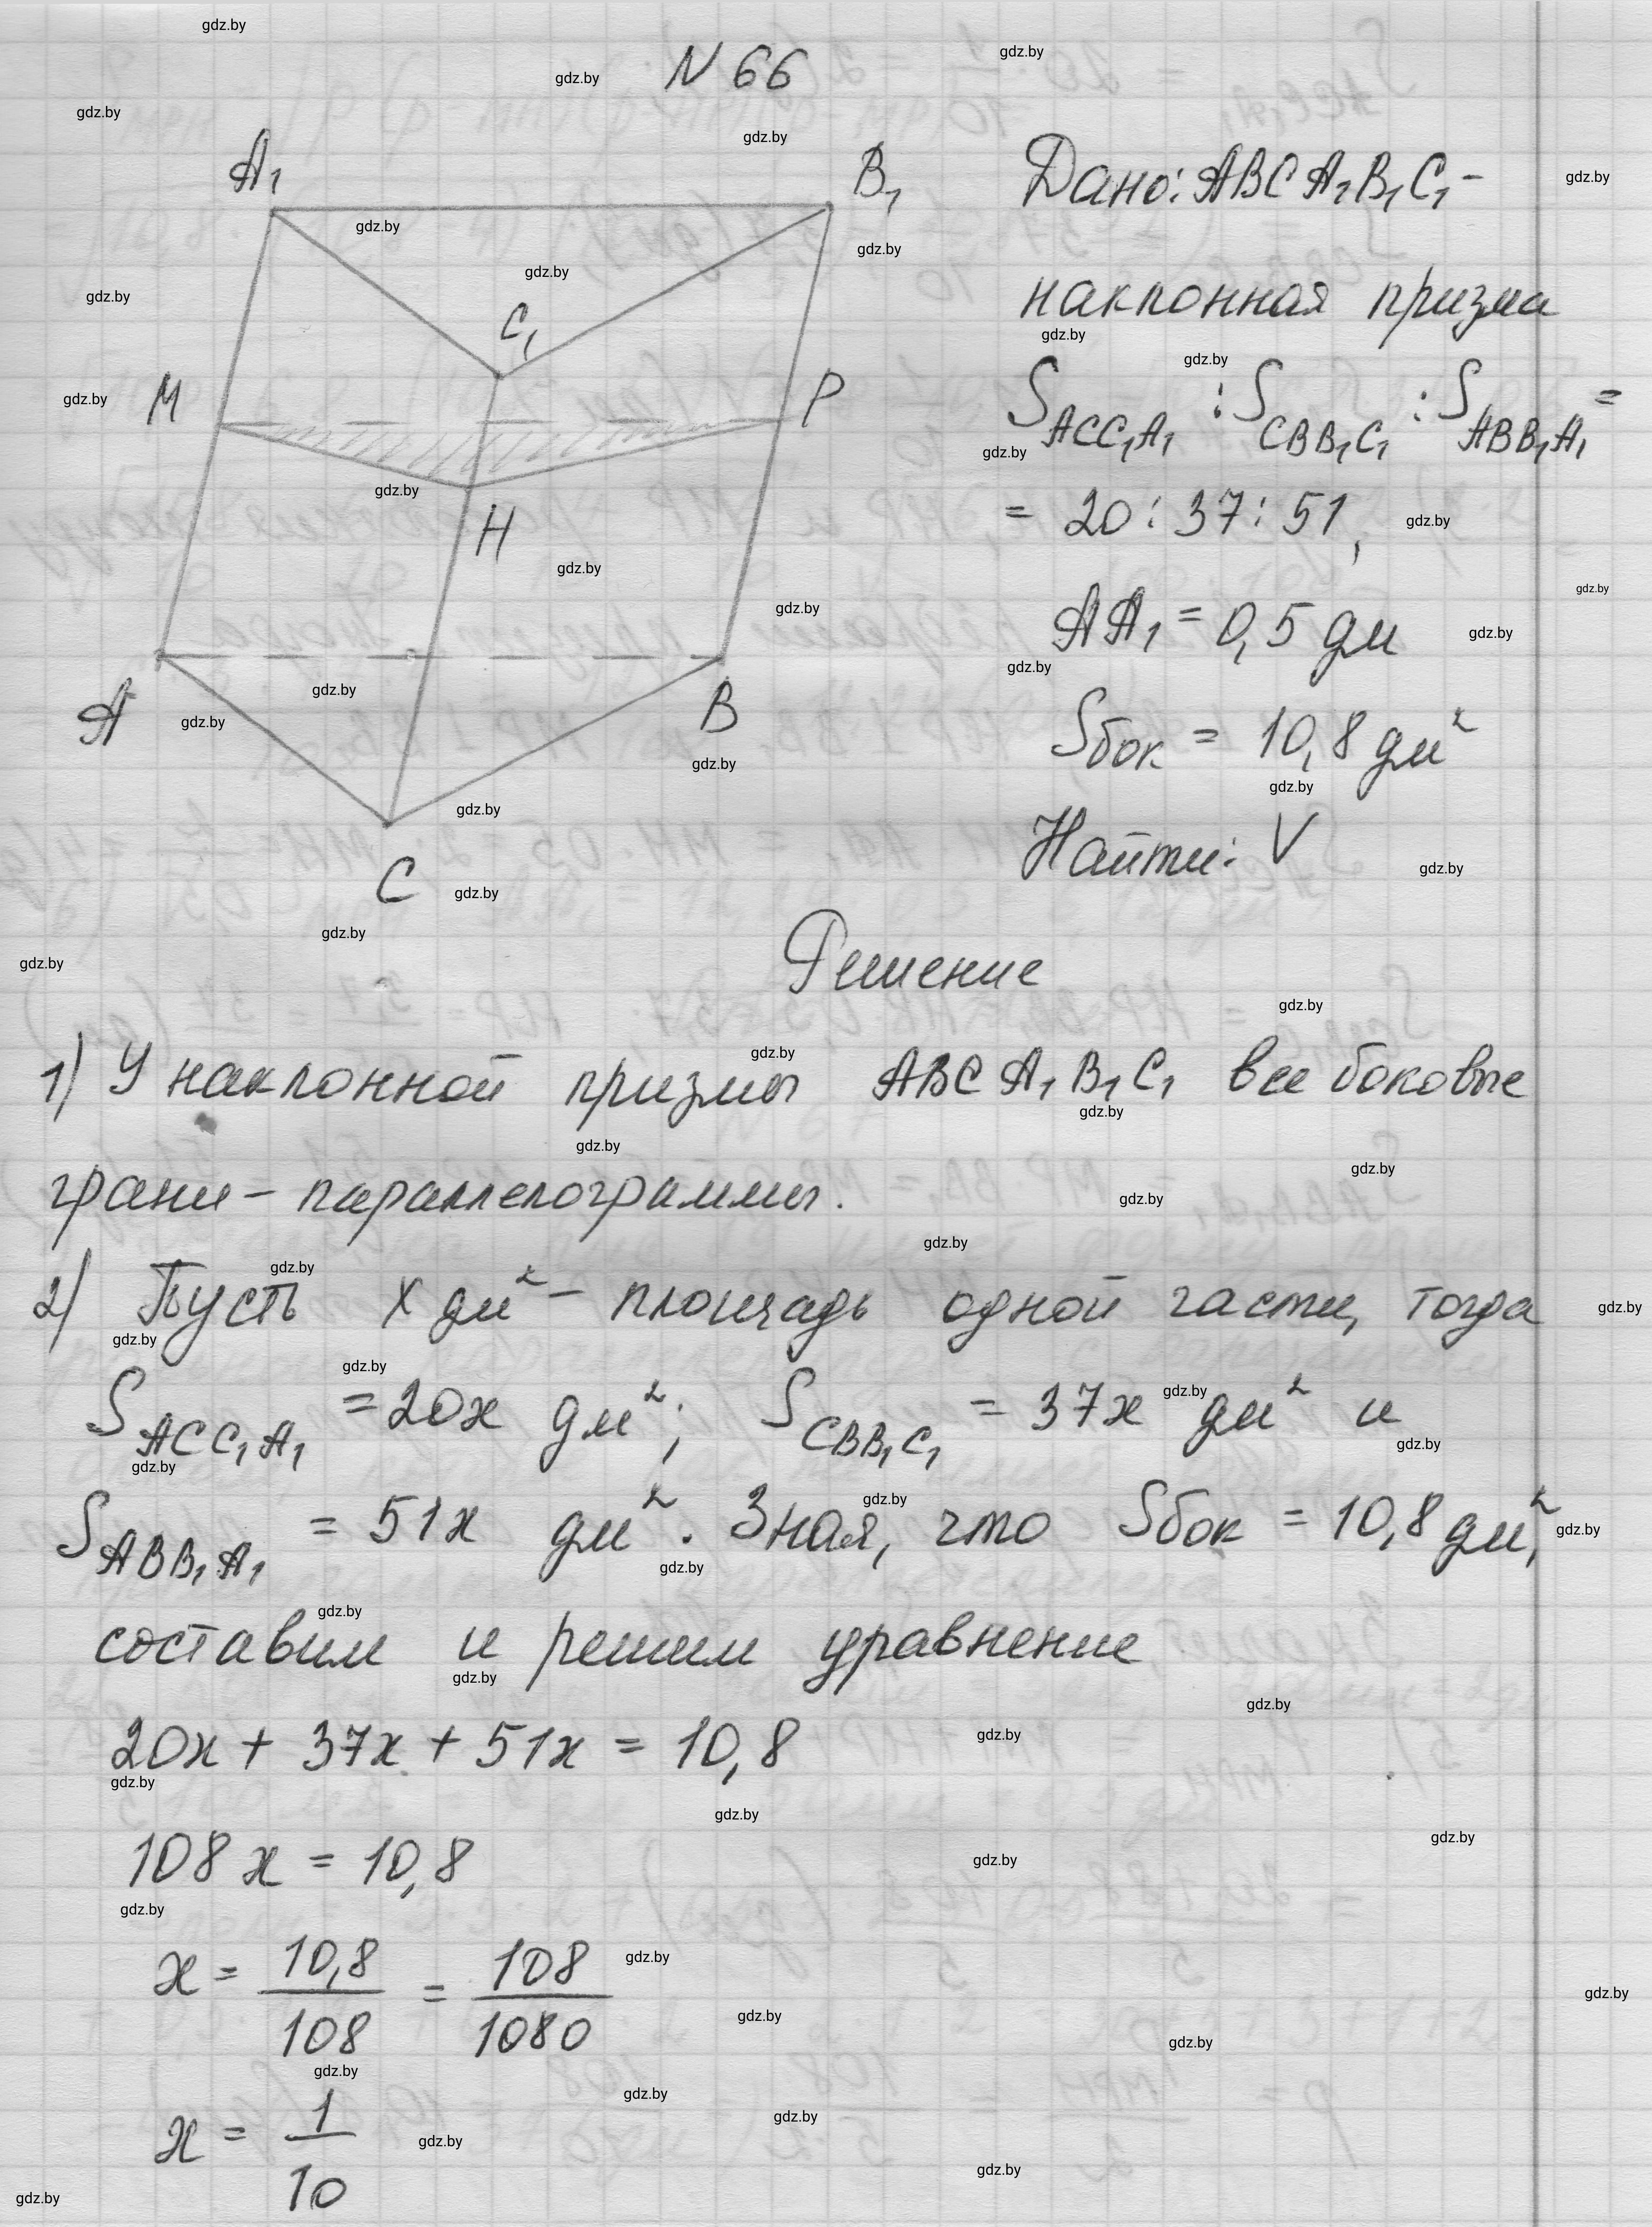 N 66
A₁
B₁
C₁
M
P
H
A
B
C
Дано: ABCA₁B₁C₁ –
наклонная призма
S_ACC₁A₁ : S_CBB₁C₁ : S_ABB₁A₁ =
= 20 : 37 : 51,
AA₁ = 0,5 дм
Sбок = 10,8 дм²
Найти: V
Решение
1) У наклонной призмы ABCA₁B₁C₁ все боковые
грани – параллелограммы.
2) Пусть x дм² – площадь одной части, тогда
S_ACC₁A₁ = 20x дм²; S_CBB₁C₁ = 37x дм² и
S_ABB₁A₁ = 51x дм². Зная, что Sбок = 10,8 дм²,
составим и решим уравнение
20x + 37x + 51x = 10,8
108x = 10,8
x = 10,8/108 = 108/1080
x = 1/10
gdz.by